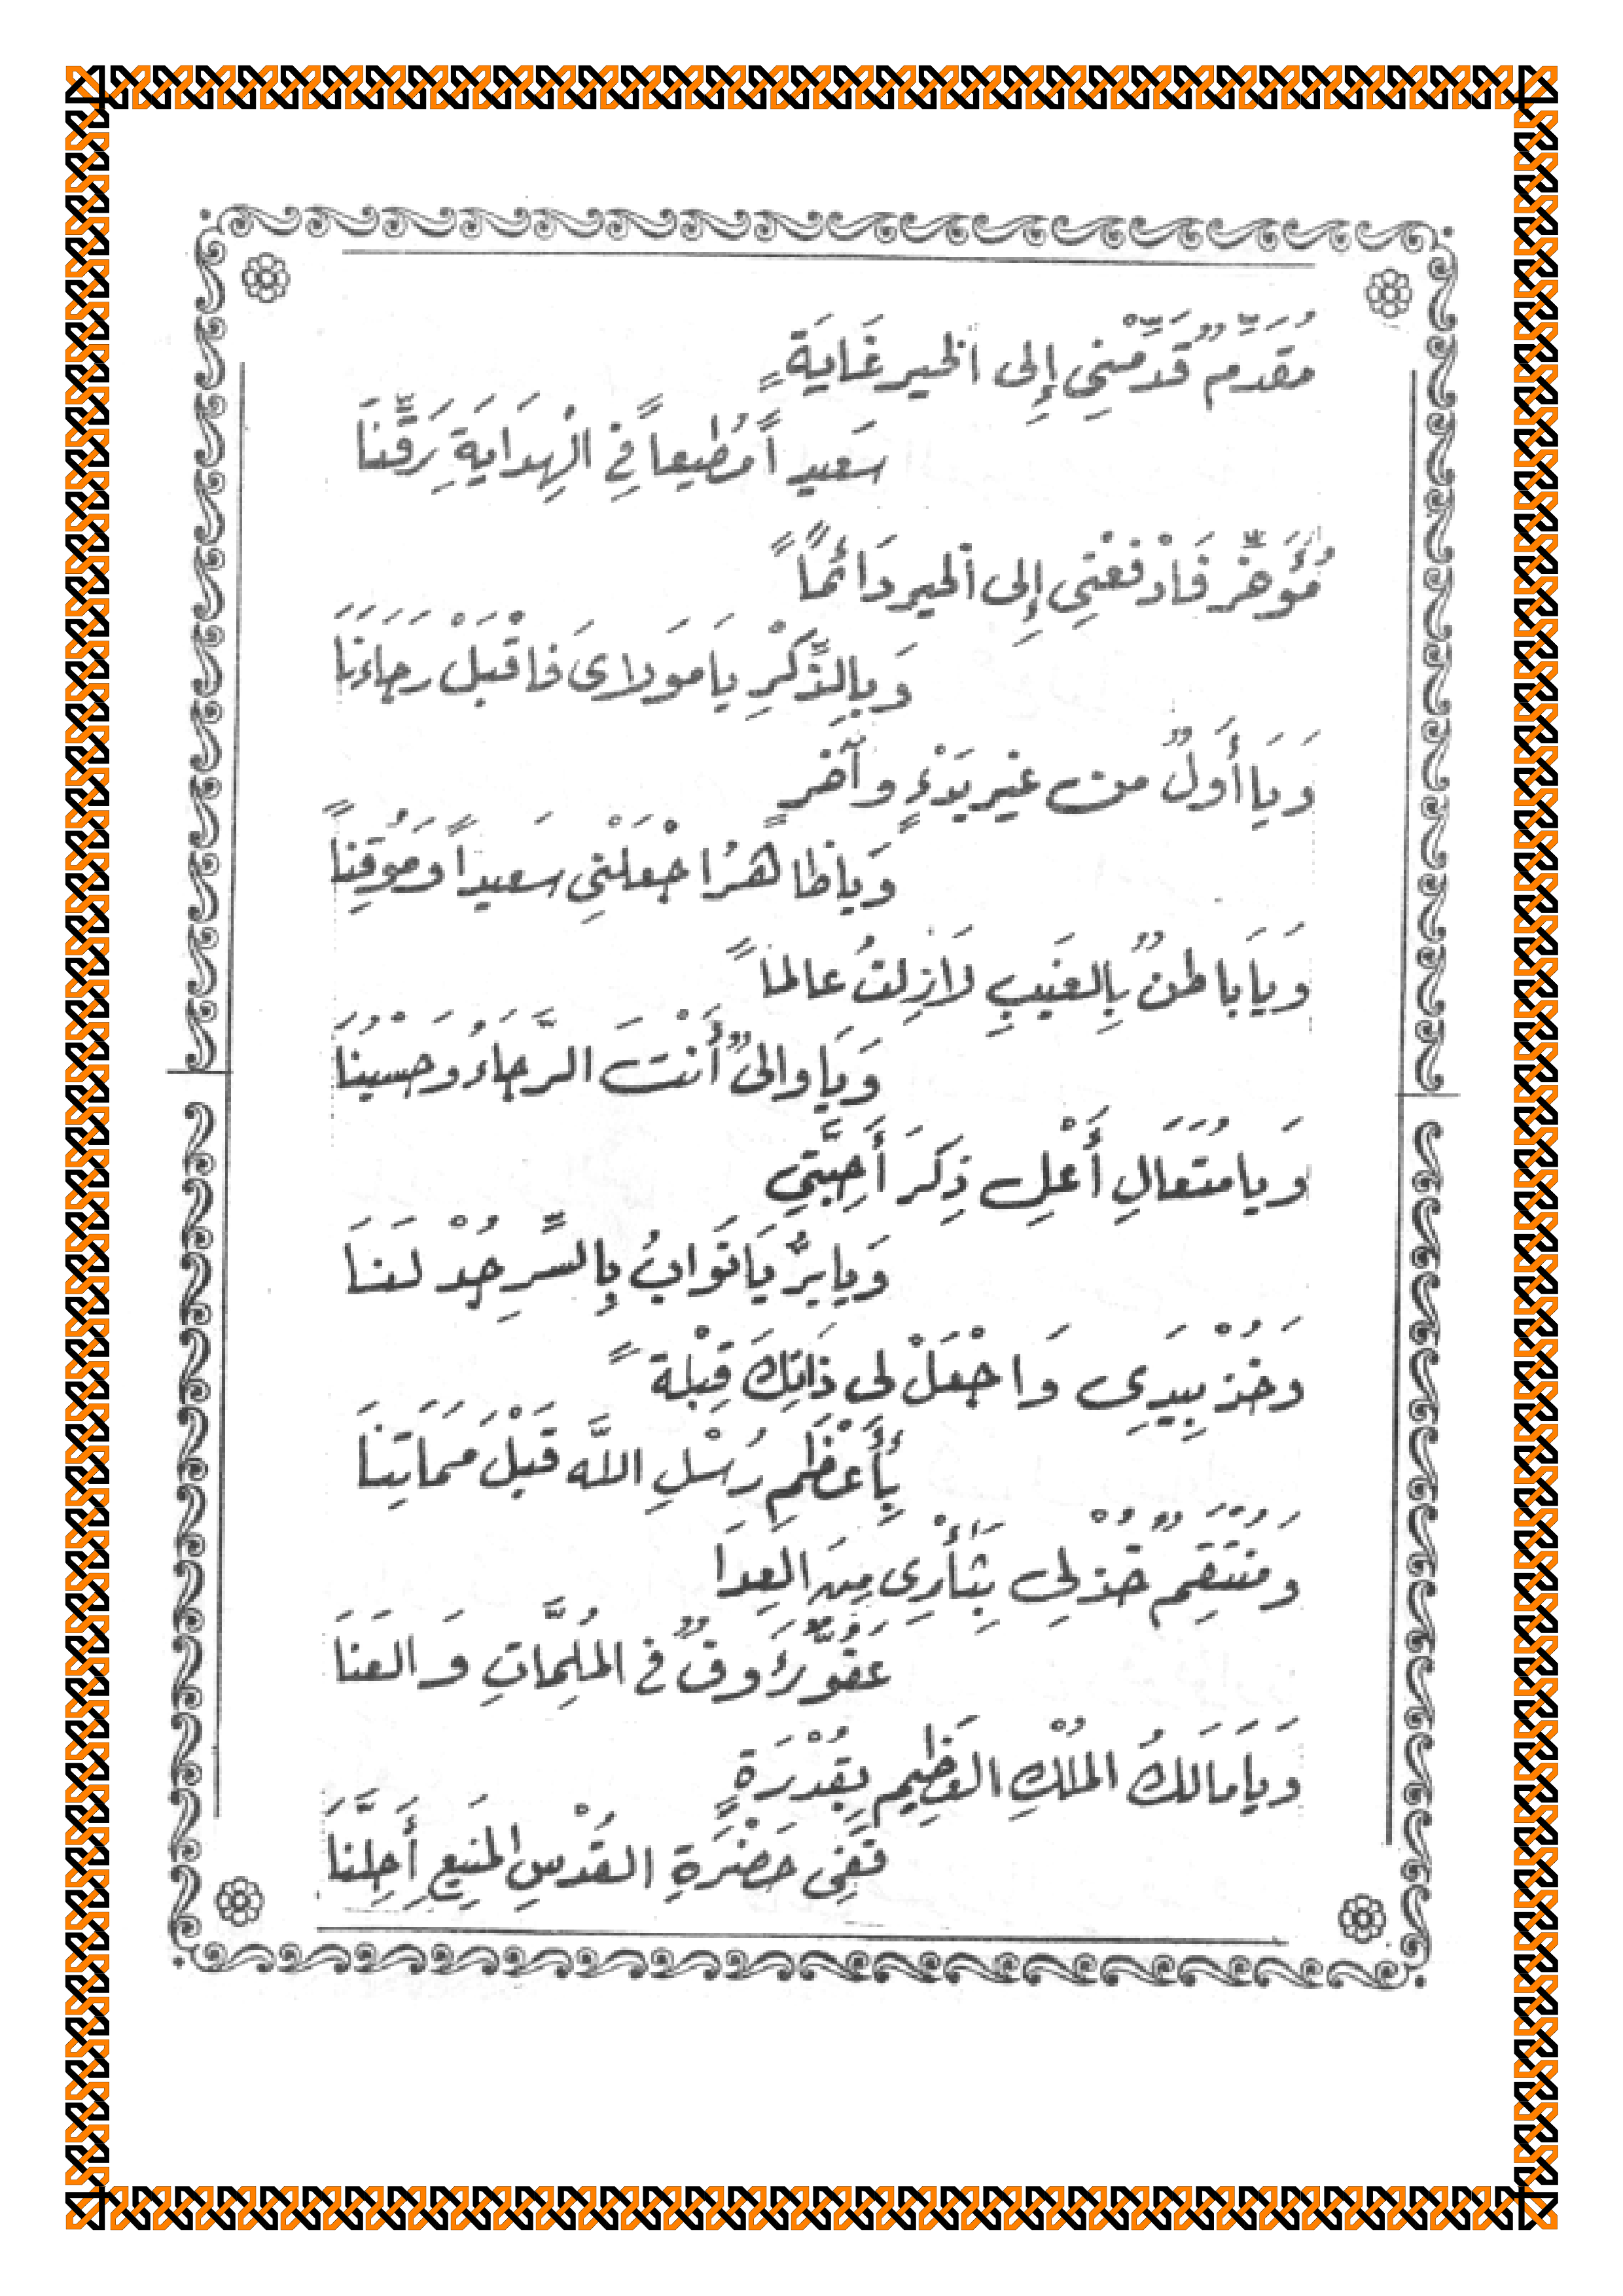 مُقَدِّمٌ قَدِّمْنِي إِلى الخير غَايَةٍ
سَعيداً مُطيعاً فِي الْهِدَايَةِ رَقِّنَا
مُؤَخِّر فَادْفَعْنِي إِلى الخير دَائماً
وَبِالذِّكْرِ يَا مَولاىَ فاقْبَلْ رَجَاءَنَا
وَيَا أَولٌ من غير بَدْءٍ وآخرٍ
وَيا ظاهرُ اجْعَلْنِي سَعيداً ومُوقِناً
وَيَا باطنٌ بِالغَيبِ لاَزِلتُ عالماً
وَيَا والىٌ أَنْتَ الرَّجَاءُ وَحَسْبُنَا
وَيا مُتَعَالِ أَعْلِ ذِكَرَ أَحِبَّتِي
وَيا برُّ يَا تَوابُ بِالسِّرِ جُدْ لَنَا
وَخُذْ بِيَدِى وَاجْعَلْ لى ذَاتِكَ قِبْلةً
بِأَعْظَمِ رُسْلِ اللَّه قَبْلَ مَمَاتِنَا
وَمُنْتَقِمٌ خُذْ لِى بِثَأْرِى مِنَ العِدَا
عَفُوٌّ رَؤُوفٌ في المُلِمَّاتِ وَالعَنَا
وَيَا مَالكُ المُلْكِ العَظِيمِ بِقُدْرَةٍ
فَفِى حَضْرَةِ القُدْسِ المَنِيعِ أَحِلَّنَا